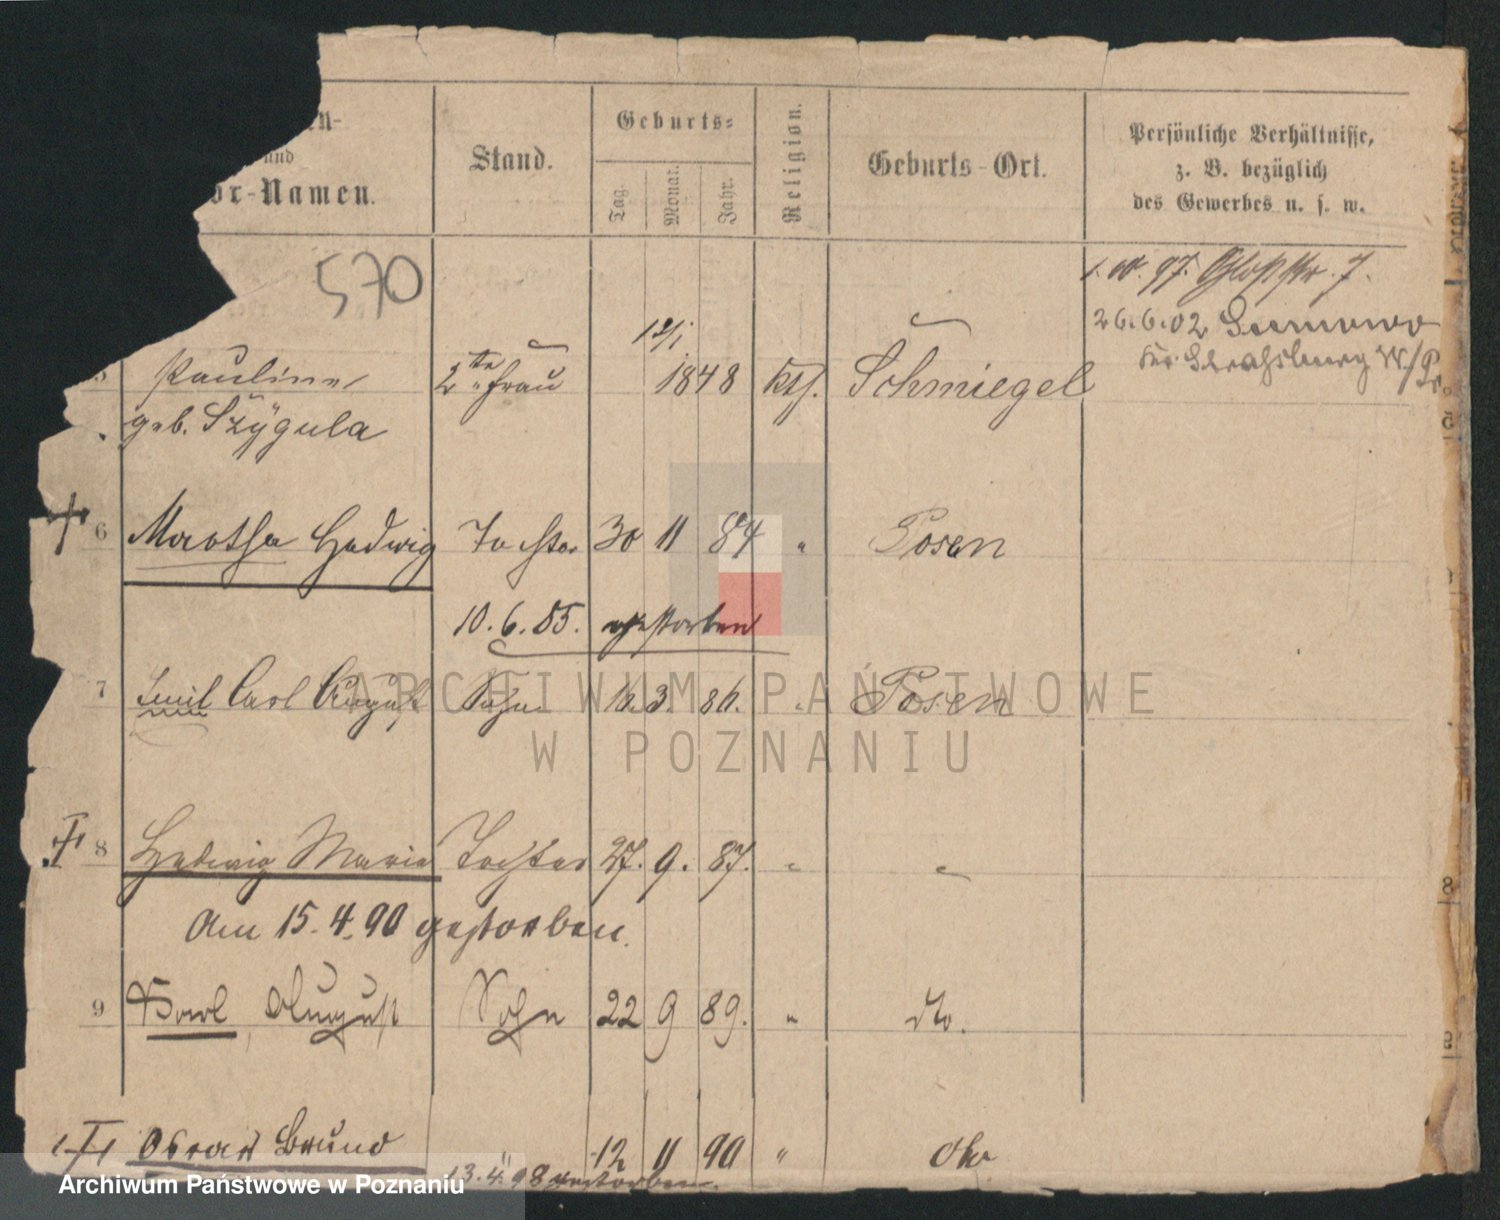 en-
und
or-Namen.
Stand.
Geburts-
Tag.
Monat.
Jahr.
Religion.
Geburts-Ort.
Persönliche Verhältnisse,
z. B. bezüglich
des Gewerbes u. s. w.
570
1. 10. 97. 7.
26.6.02
Strasburg W./Pr.
12/1
Pauline 2te Frau 1848 kth. Schmiegel
geb. Szÿgula
6 Martha Hedwig Tochter 30 11 84 " Posen
10. 6. 85. gestorben
7 Emil Carl August Sohn 16. 3. 86. " Posen
8 Hedwig Maria Tochter 27. 9. 87. " "
Am 15. 4. 90 gestorben.
9 Karl August Sohn 22 9 89. " do.
Oscar Bruno " 12 11 90 " do
13. 4. 98 gestorben.
ARCHIWUM PAŃSTWOWE
W POZNANIU
Archiwum Państwowe w Poznaniu